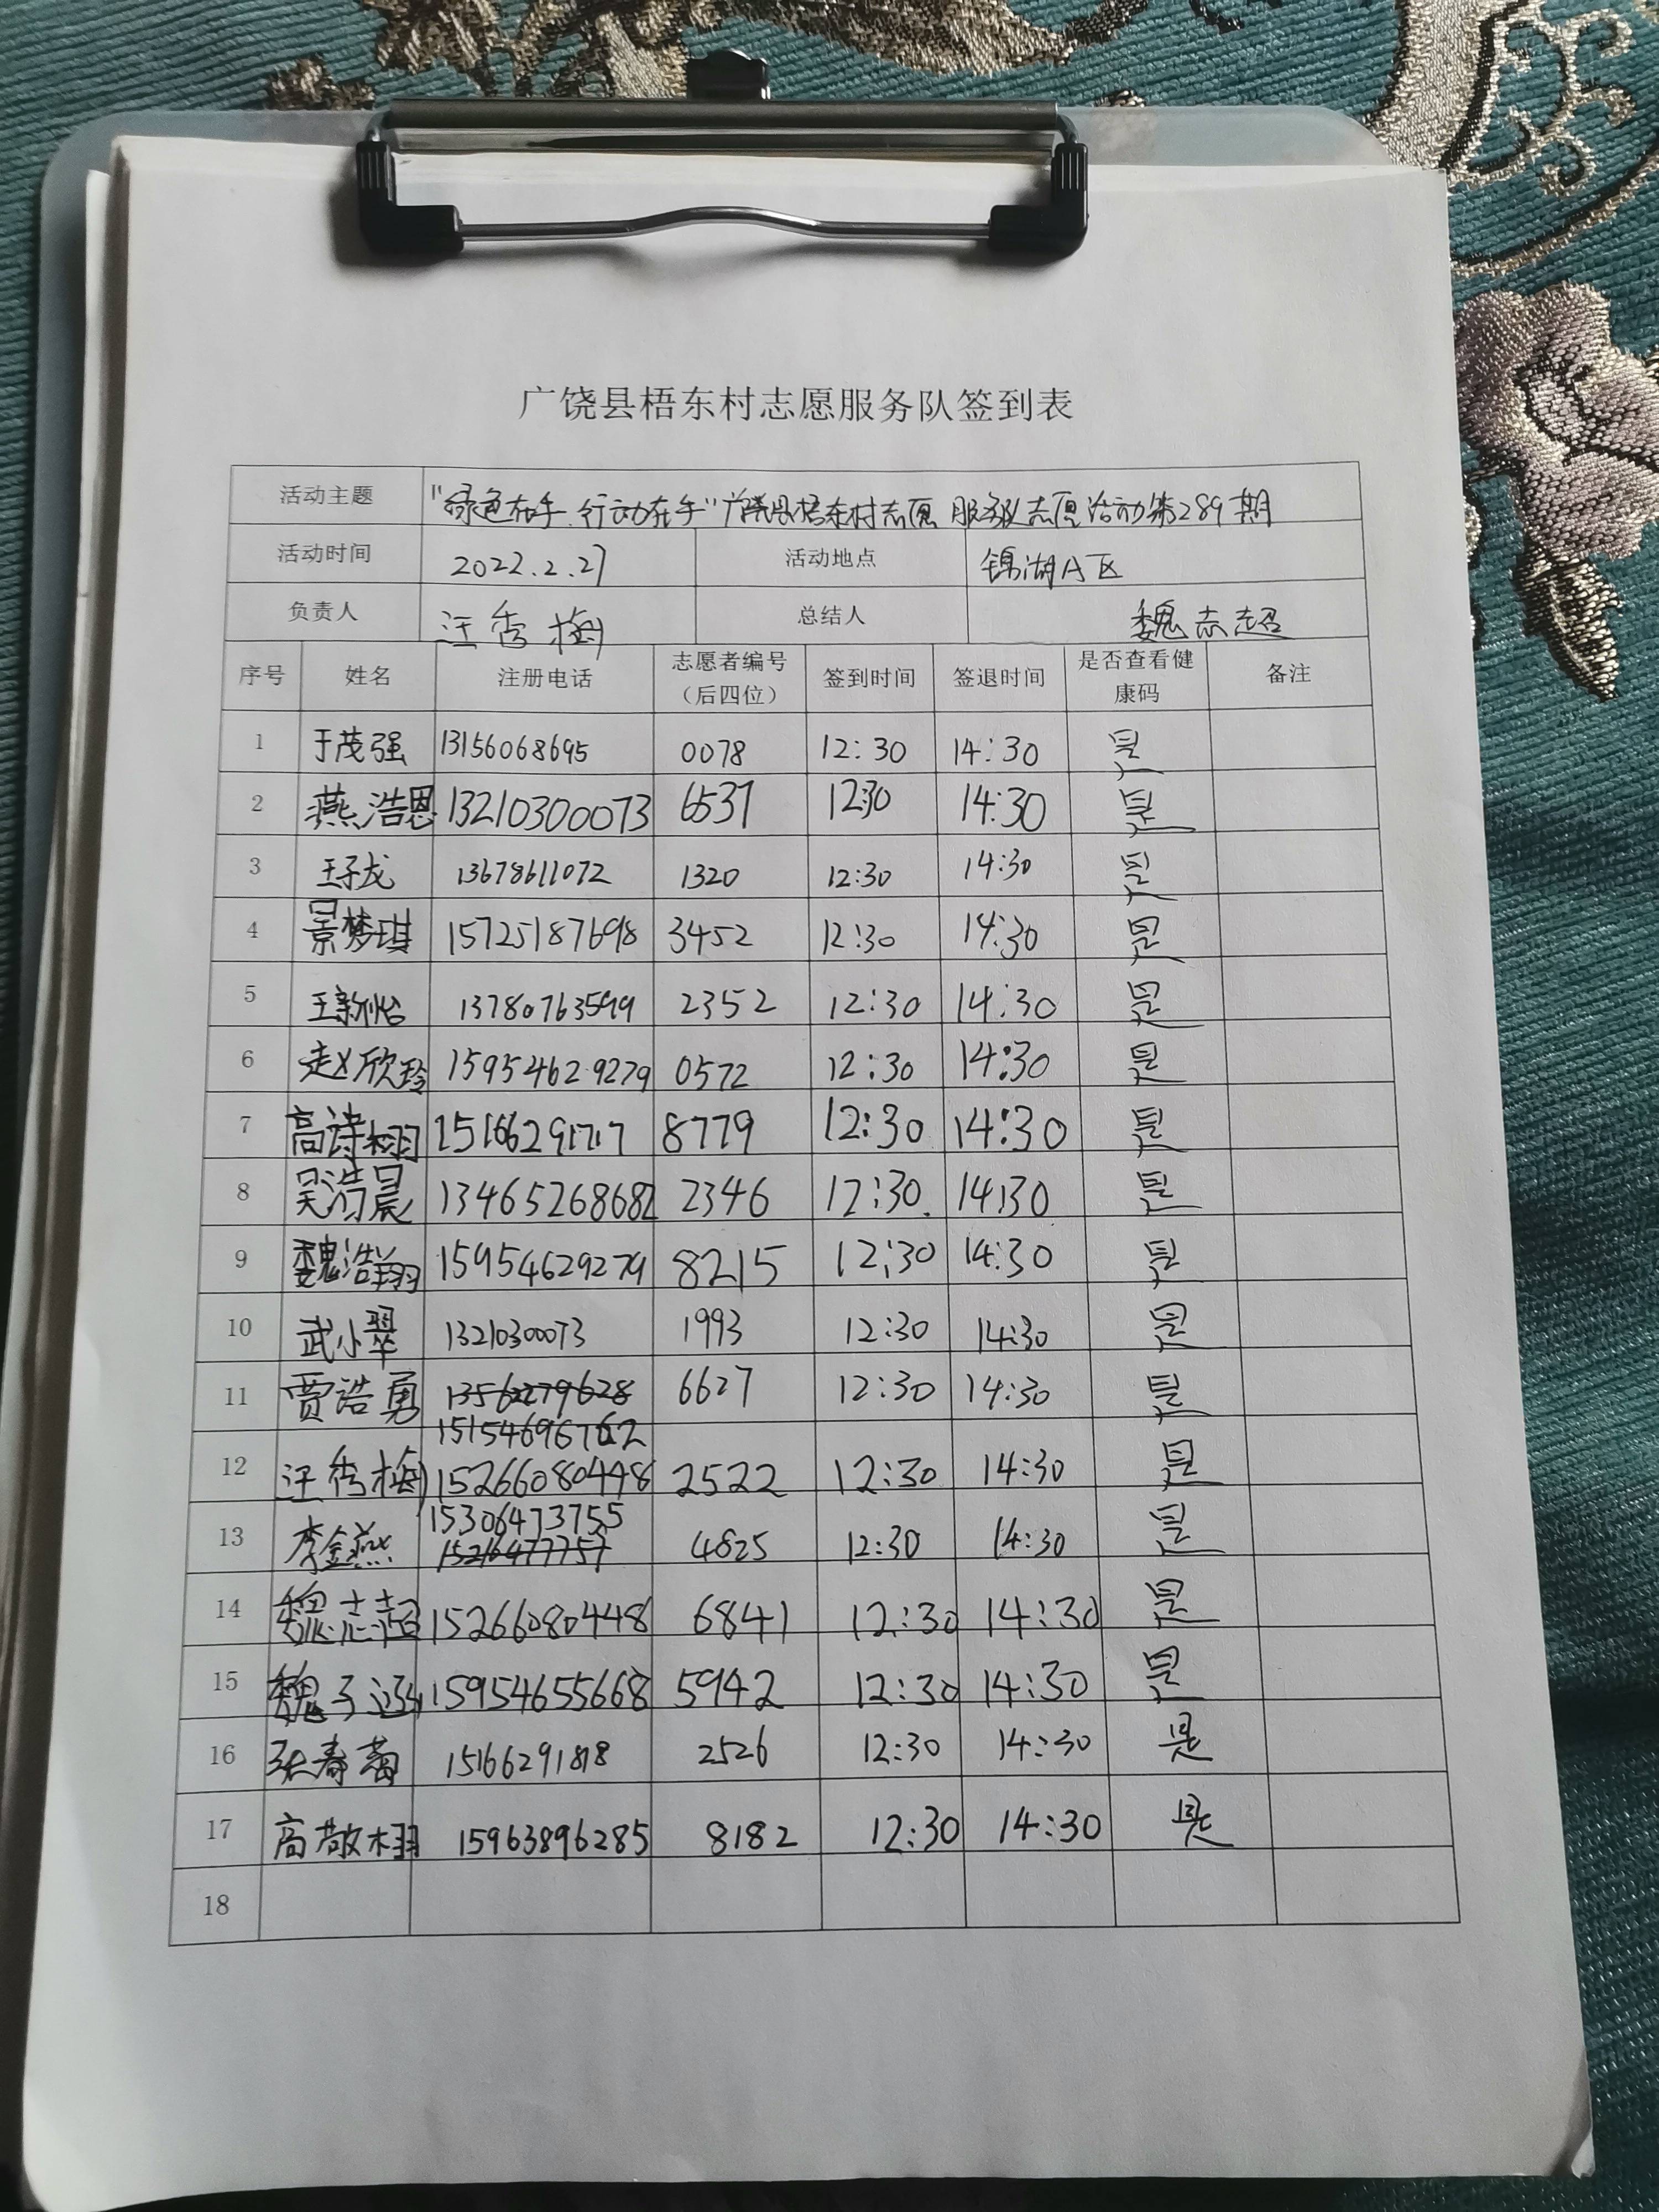 广饶县梧东村志愿服务队签到表
活动主题 "绿色在手 行动在手"广饶县梧东村志愿服务队志愿活动第289期
活动时间 2022.2.27 活动地点 锦湖A区
负责人 汪秀梅 总结人 魏志超
序号 姓名 注册电话 志愿者编号（后四位） 签到时间 签退时间 是否查看健康码 备注
1 于茂强 13156068695 0078 12:30 14:30 是
2 燕浩恩 13210300073 6537 12:30 14:30 是
3 王子龙 13678611072 1320 12:30 14:30 是
4 景梦琪 15725187698 3452 12:30 14:30 是
5 王新怡 13780763599 2352 12:30 14:30 是
6 赵欣玲 15954629279 0572 12:30 14:30 是
7 高诗栩 15166291717 8779 12:30 14:30 是
8 吴浩晨 13465268682 2346 12:30. 14:30 是
9 魏浩翔 15954629279 8215 12:30 14:30 是
10 武小翠 13210300073 1993 12:30 14:30 是
11 贾浩勇 13562279628 6627 12:30 14:30 是
15154696762
12 汪秀梅 15266080448 2522 12:30 14:30 是
15306473755
13 李金燕 4825 12:30 14:30 是
14 魏志超 15266080448 6841 12:30 14:30 是
15 魏子涵 15954655668 5942 12:30 14:30 是
16 张春菊 15166291818 2526 12:30 14:30 是
17 高敬栩 15963896285 8182 12:30 14:30 是
18